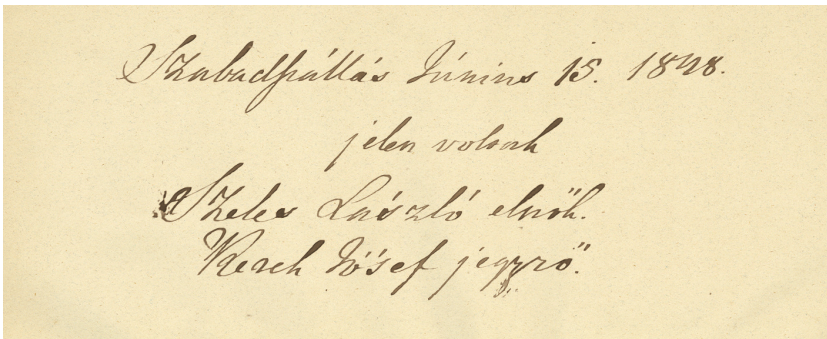 Szabadszállás Június 15. 1848.
jelen voltak
Szeles László elnök.
Kerek Jósef jegyző.